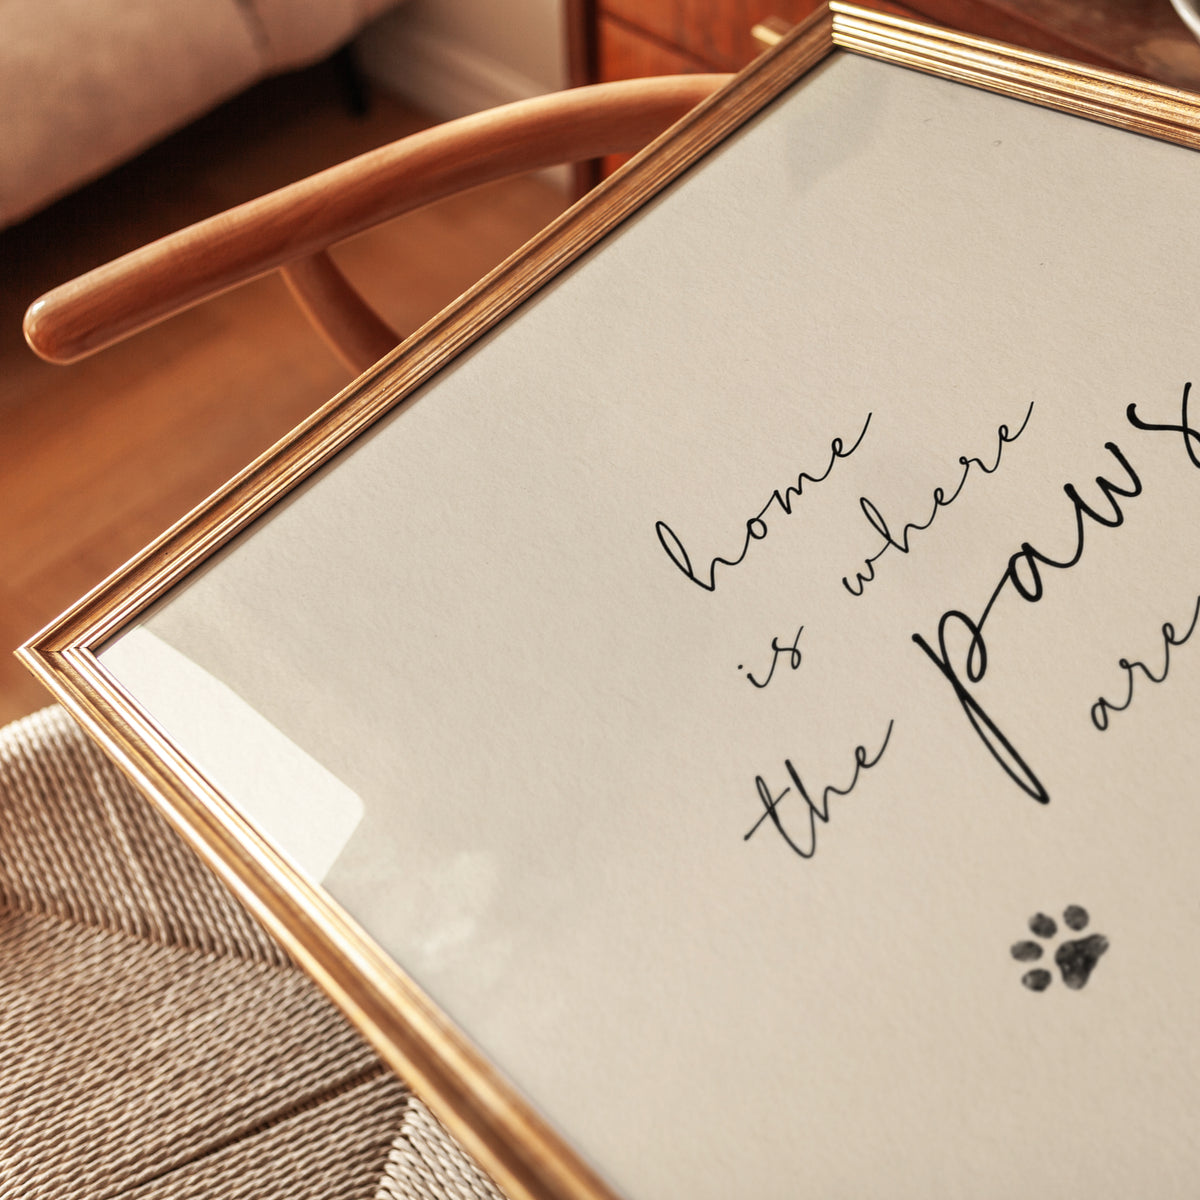 home
is where
the paws
are